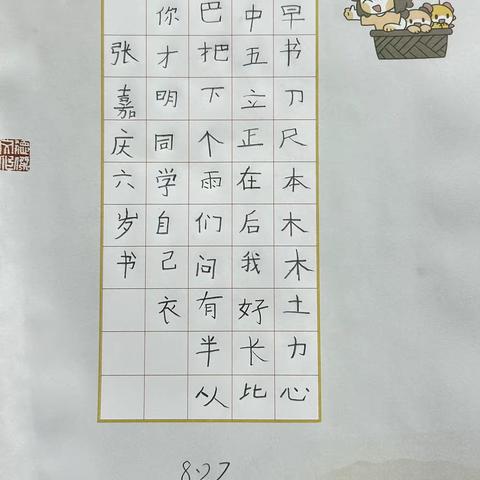 早书刀尺本木木土力心
中五立正在后我好长比
巴把下个雨们问有半从
你才明同学自己衣
张嘉庆六岁书
8.27